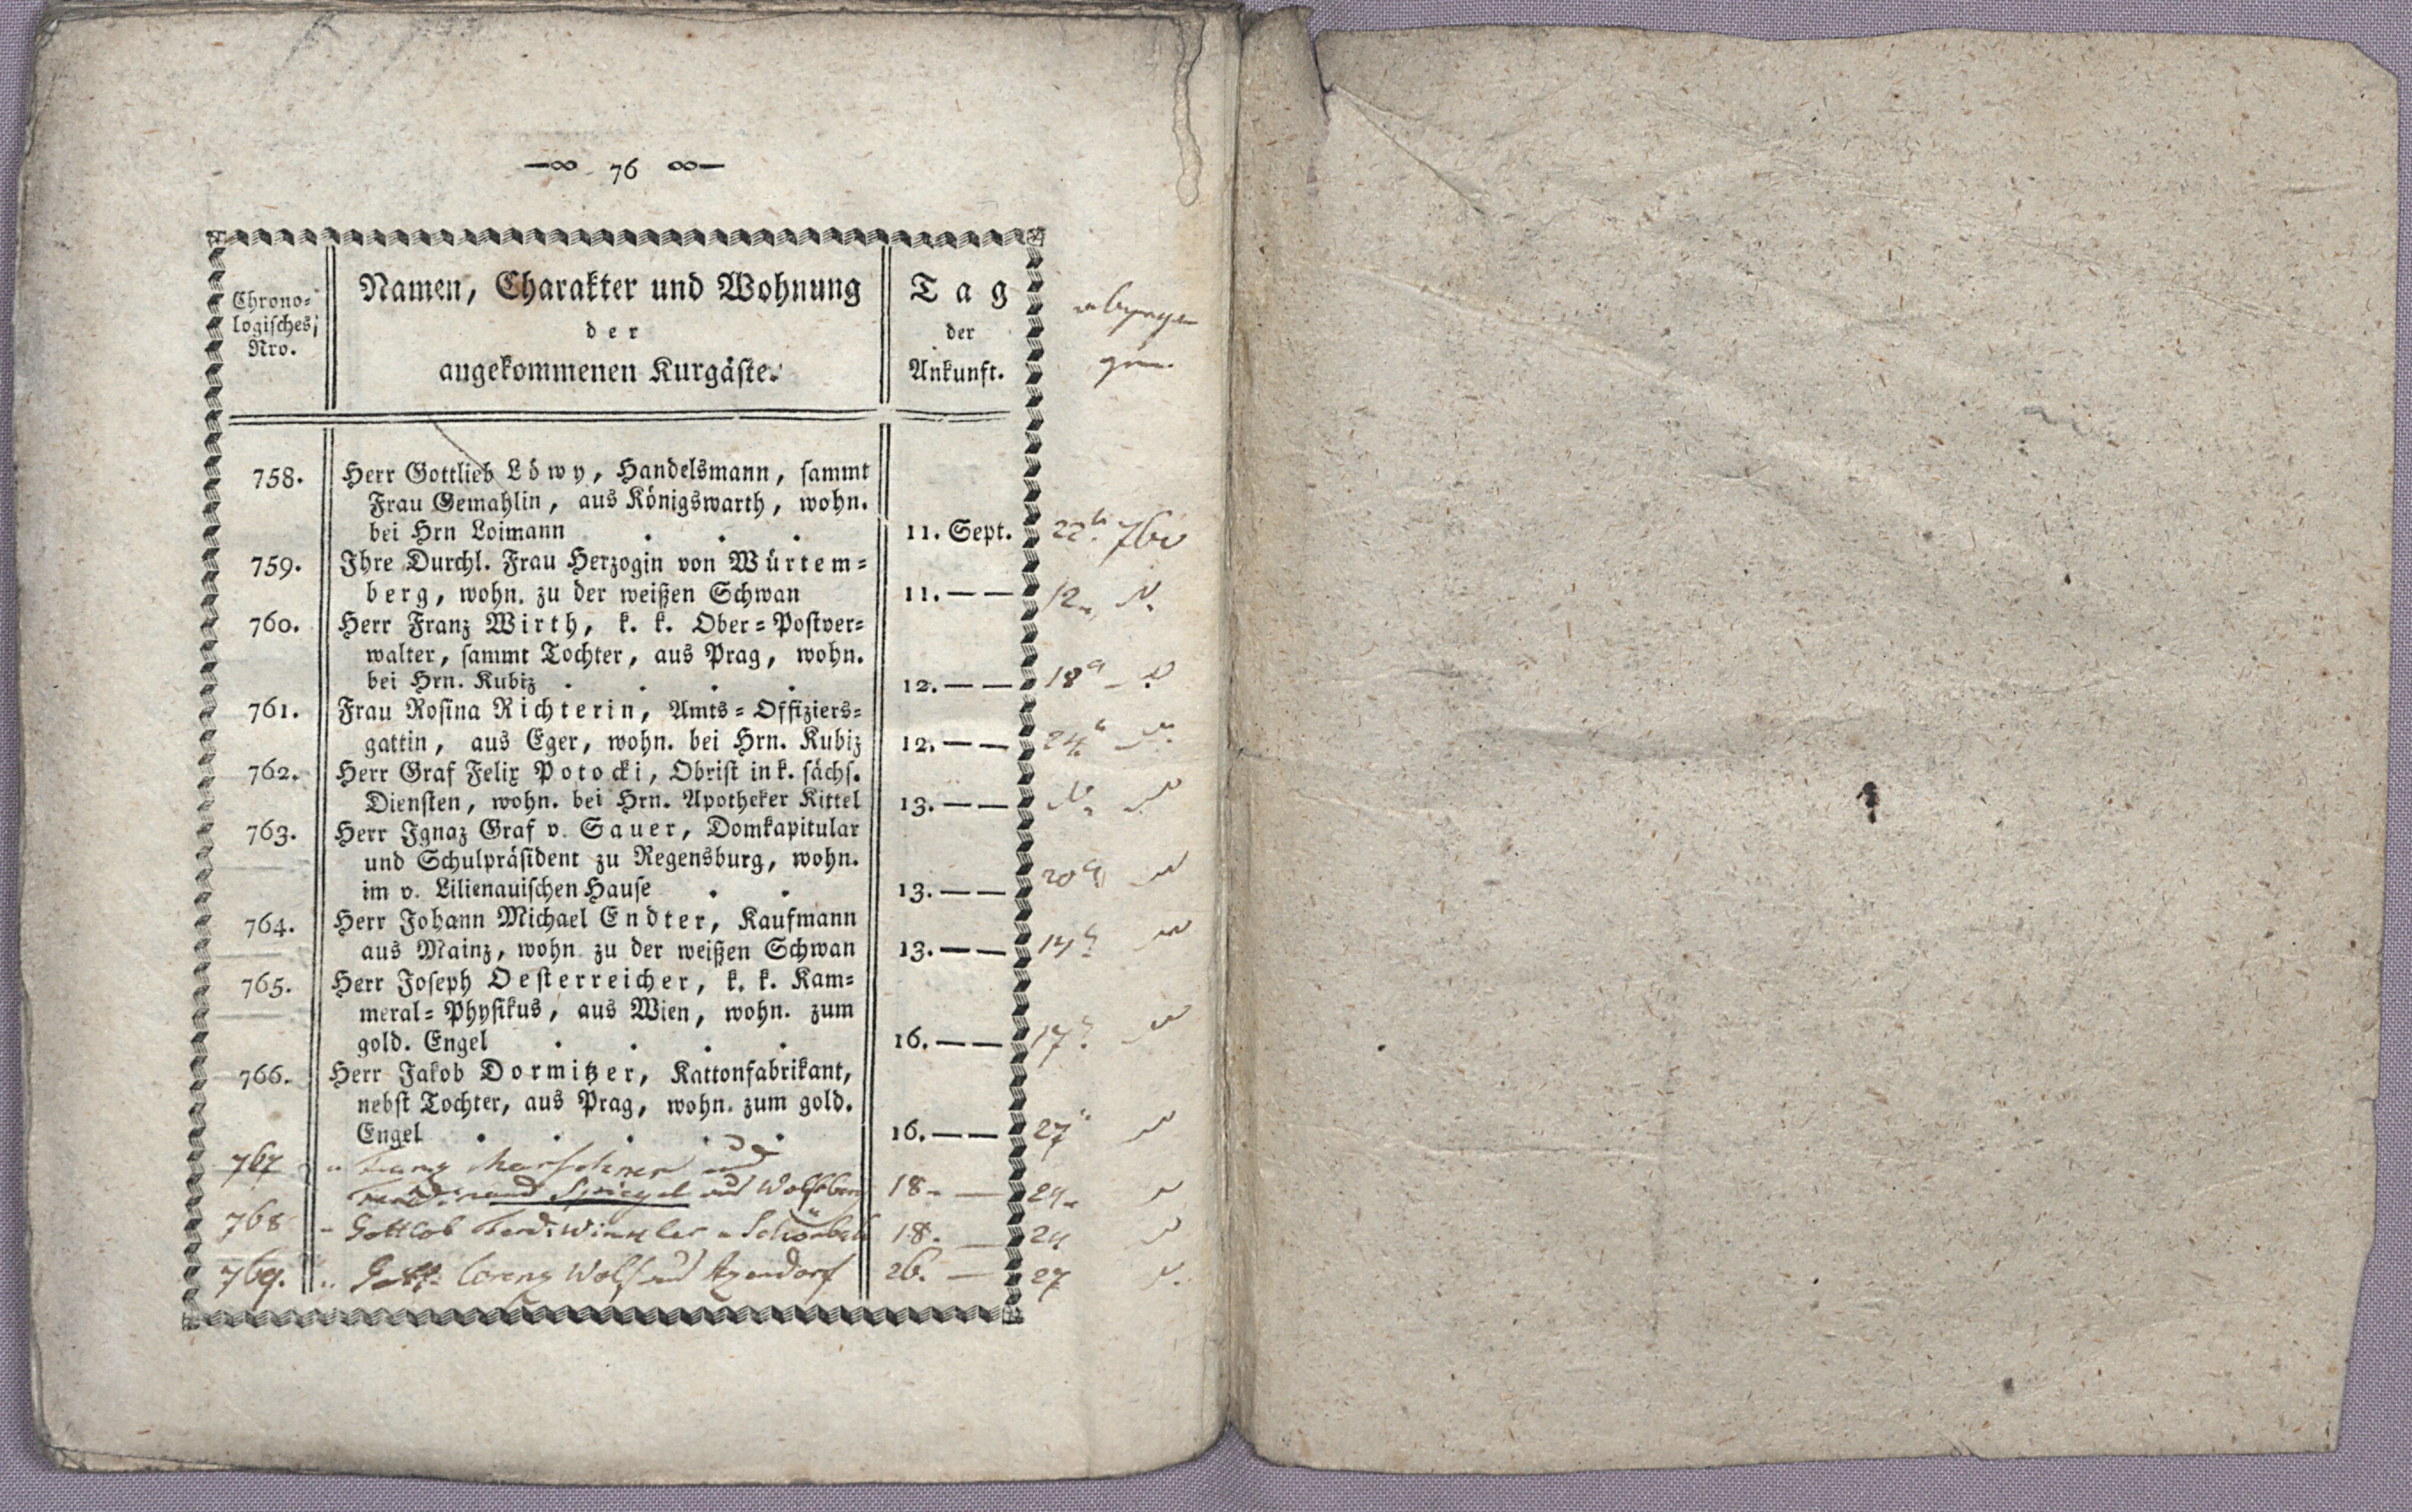 76
Chrono-
logisches
Nro.
Namen, Charakter und Wohnung
der
angekommenen Kurgäste.
Tag
der
Ankunft.
758. Herr Gottlieb Löwy, Handelsmann, sammt
Frau Gemahlin, aus Königswarth, wohn.
bei Hrn Loimann . . . 11. Sept. 22 7br
759. Ihre Durchl. Frau Herzogin von Würtem-
berg, wohn. zu der weißen Schwan 11. — — 12
760. Herr Franz Wirth, k. k. Ober-Postver-
walter, sammt Tochter, aus Prag, wohn.
bei Hrn. Kubiz . . . . 12. — — 18
761. Frau Rosina Richterin, Amts-Offiziers-
gattin, aus Eger, wohn. bei Hrn. Kubiz 12. — — 24
762. Herr Graf Felix Potocki, Obrist in k. sächs.
Diensten, wohn. bei Hrn. Apotheker Kittel 13. — —
763. Herr Ignaz Graf v. Sauer, Domkapitular
und Schulpräsident zu Regensburg, wohn.
im v. Lilienauischen Hause . . 13. — — 20
764. Herr Johann Michael Endter, Kaufmann
aus Mainz, wohn zu der weißen Schwan 13. — —
765. Herr Joseph Oesterreicher, k. k. Kam-
meral-Physikus, aus Wien, wohn. zum
gold. Engel . . . . 16. — — 17
766. Herr Jakob Dormitzer, Kattonfabrikant,
nebst Tochter, aus Prag, wohn. zum gold.
Engel . . . . . 16. — — 27
767 " Franz Marschner und
Ferdinand Spiegel aus 18. —
768 " Gottlob Ferd: Winkler 18. —
769. " Lorenz Wolf aus 26. — 27